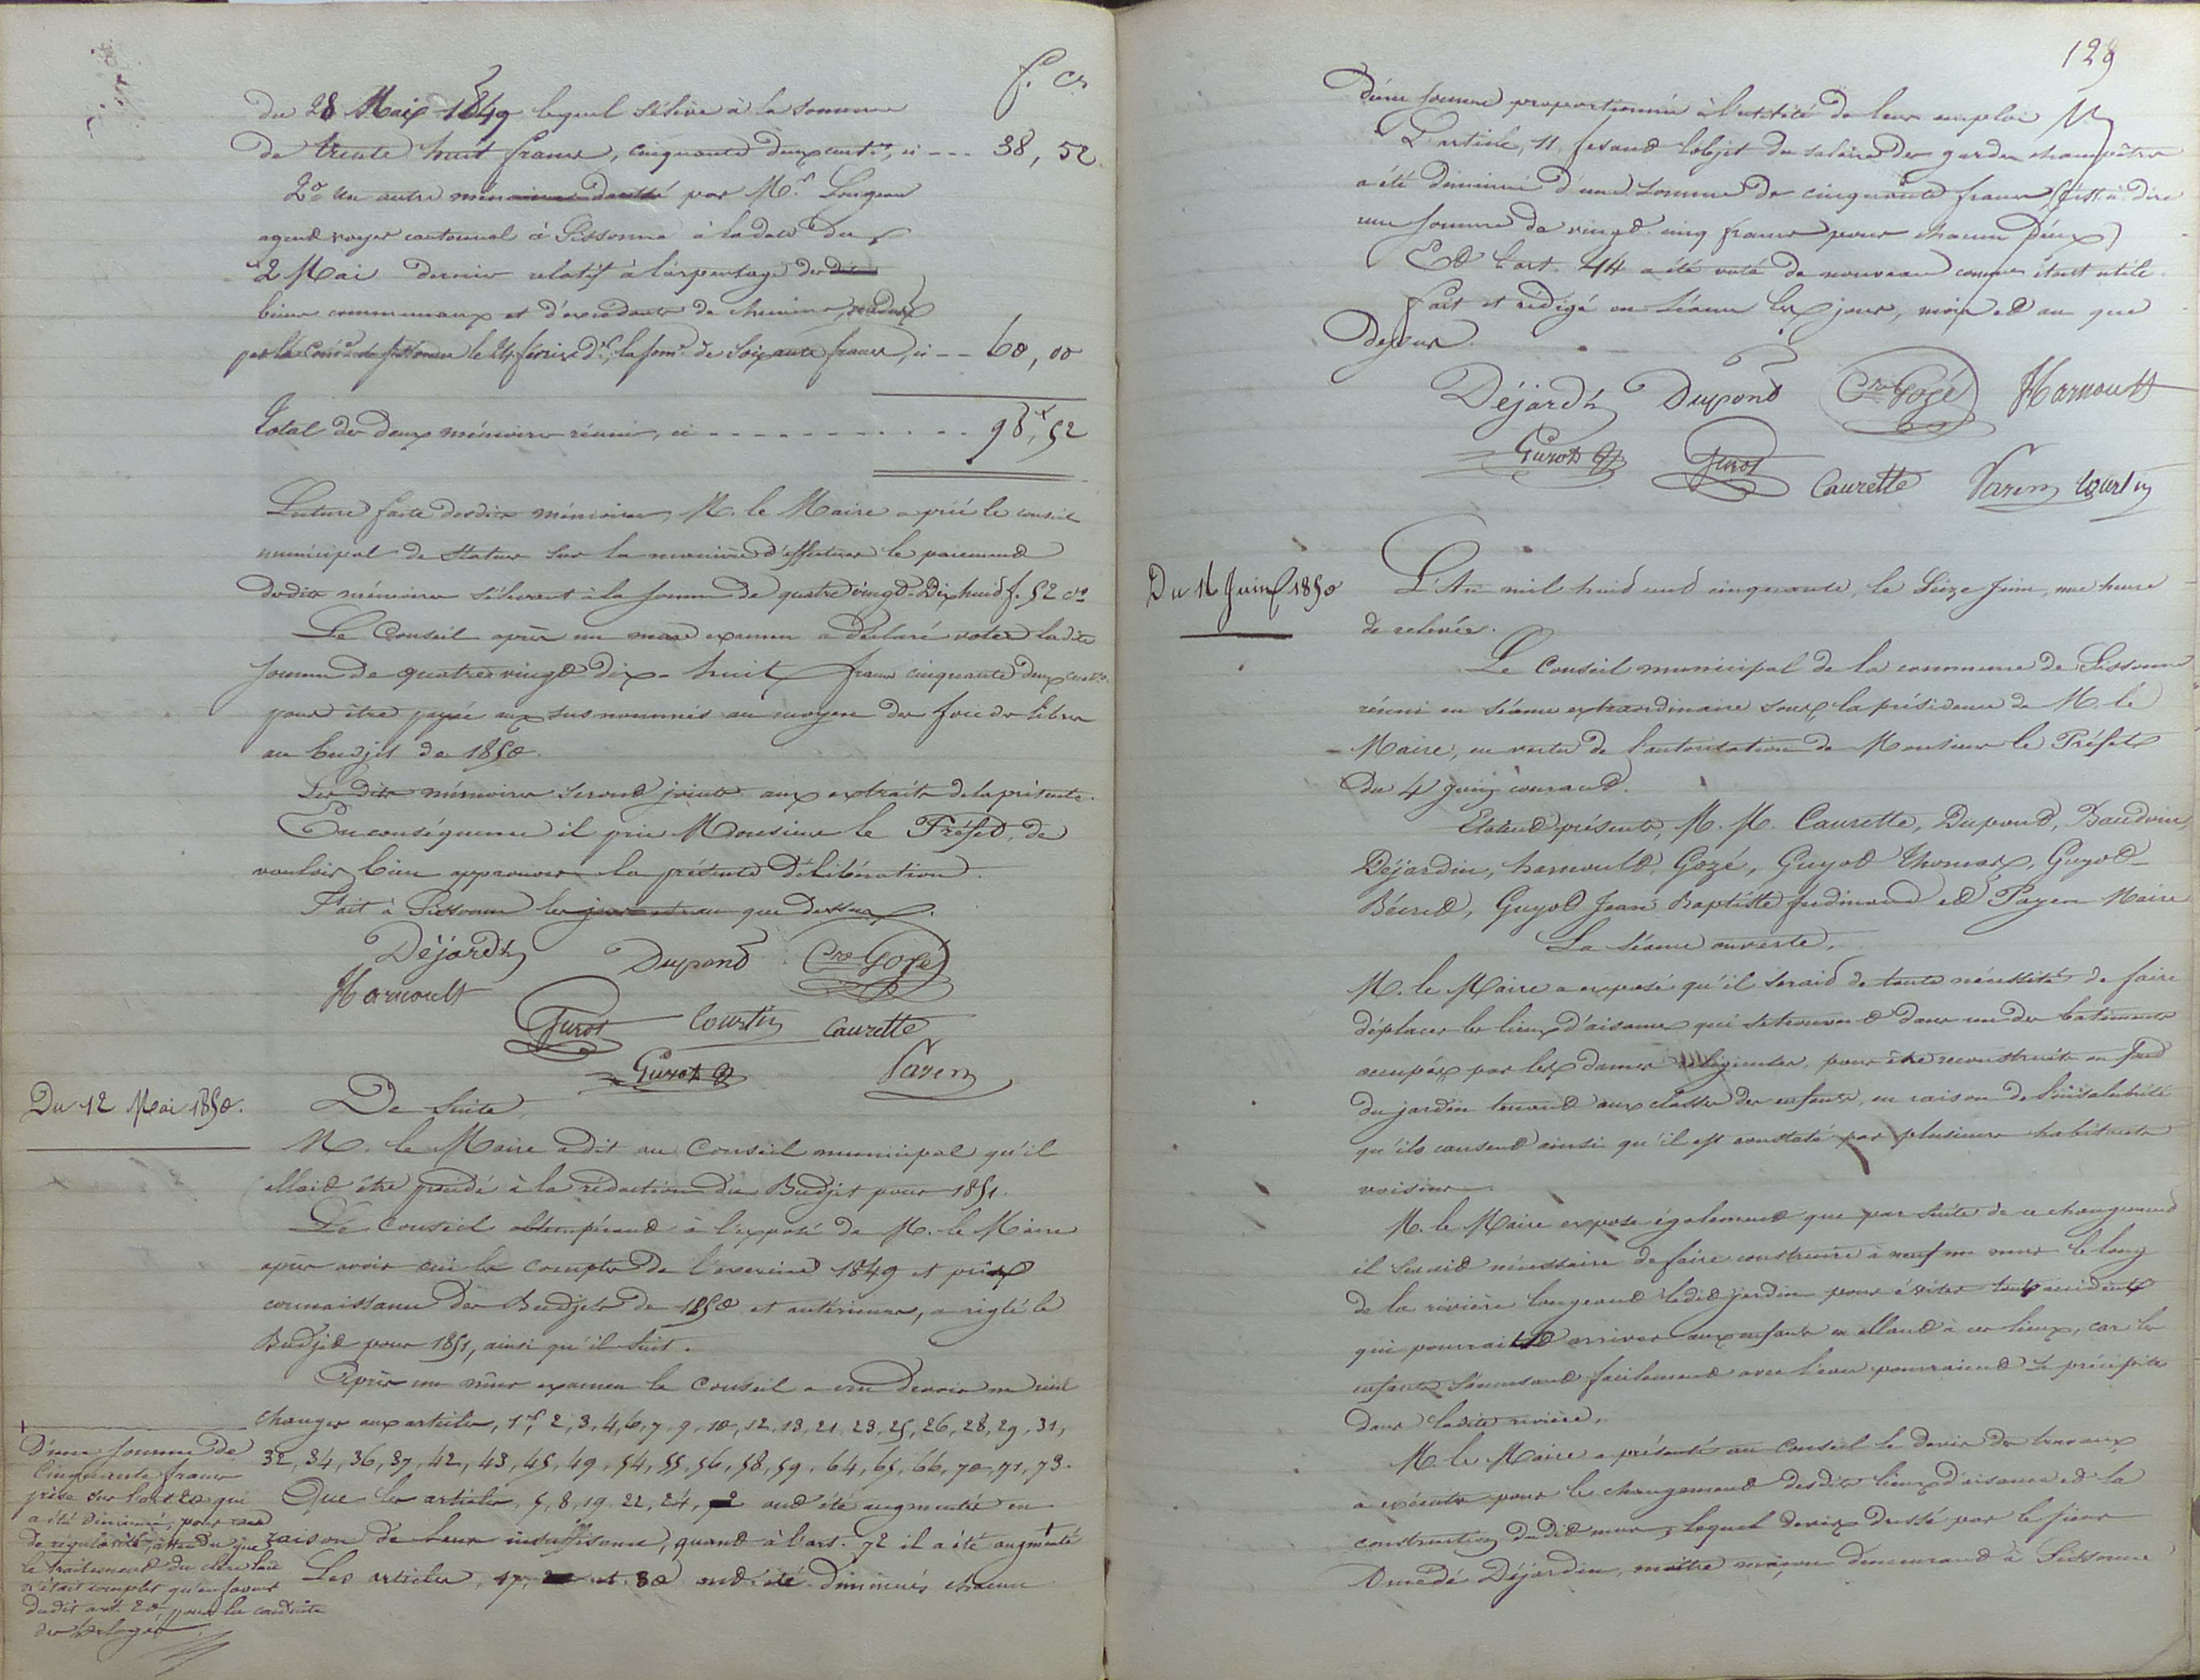 f. cs
du 28 Mai 1849 lequel s'élève à la somme
de trente huit francs, cinquante deux cent.es, ci --- 38, 52
2° un autre mémoire dressé par Mr. Longeau
agent voyer cantonnal à Sissonne à la date du
2 Mai dernier relatif à l'arpentage des
biens communaux et d'excédants de chemins, vendus
par la Com.e de Sissonne le 24 février d.er, la som.e de soixante francs, ci -- 60, 00
Total des deux mémoires réunis, ci - - - - - - - - - - - 98f, 52
Lecture faite desdits mémoires, M. le Maire a prié le conseil
municipal de statuer sur la manière d'effectuer le paiement
desdits mémoires s'élevant à la somme de quatre vingt-Dix huit f. 52 cs
Le Conseil après un mur examen a déclaré voter ladite
somme de quatre vingt dix-huit francs cinquante deux cent.es
pour être payée aux susnommés au moyen des fonds libres
au budjet de 1850.
Les dits mémoires seront joints aux extraits de la présente.
En conséquence il prie Monsieur le Préfet, de
vouloir bien approuver la présente Délibération.
Fait à Sissonne les jour et an que dessus.
Déjardin Dupont Cre Gozé
Harnoult
Guyot Courtin Caurette
Guyot Payen
Du 12 Mai 1850.
De suite
M. le Maire a dit au Conseil municipal qu'il
allait être procédé à la rédaction du Budjet pour 1851.
Le Conseil obtempérant à l'exposé de M. le Maire
après avoir oui les comptes de l'exercice 1849 et pris
connaissance des Budjets de 1850 et antérieurs, a réglé le
Budjet pour 1851, ainsi qu'il suit.
Après un mûr examen le Conseil a cru devoir ne rien
changer aux articles, 1er, 2, 3, 4, 6, 7, 9, 10, 12, 13, 21, 23, 25, 26, 28, 29, 31,
32, 34, 36, 37, 42, 43, 45, 49, 54, 55, 56, 58, 59, 64, 65, 66, 70, 71, 73.
Que les articles, 5, 8, 19, 22, 24, ont été augmentés en
raison de leur insuffisance, quant à l'art. 72 il a été augmenté +
Les articles, 17, et 30 ont été diminués chacun
+
D'une somme de
cinquante francs
prise sur l'art 20 qui
a été diminué, pour
de régularité, attendu que
le traitement du clerc laïc
n'était complet qu'en faveur
dudit art. 20, pour la conduite
de l'horloge.
129
d'une somme proportionnée à l'utilité de leur emploi
L'article, 11, fesant l'objet du salaire des gardes champêtres
a été diminué d'une somme de cinquante francs, (c'est à dire
une somme de vingt cinq francs pour chacun d'eux)
Et l'art. 44 a été voté de nouveau comme étant utile.
Fait et rédigé en séance les jour, mois et an que
dessus.
Déjardin Dupont Cre Gozé Harnoult
Guyot Guyot Caurette Payen Courtin
Du 16 Juin 1850
L'An mil huit cent cinquante, le Seize Juin, une heure
de relevée.
Le Conseil municipal de la commune de Sissonne
réuni en séance extraordinaire sous la présidence de M. le
Maire, en vertu de l'autorisation de Monsieur le Préfet
du 4 Juin courant.
Etaient présents, M. M. Caurette, Dupont, Baudoin,
Déjardin, harnoult, Gozé, Guyot Thomas, Guyot
Bécret, Guyot Jean Baptiste ferdinand et Payen Maire
La séance ouverte,
M. le Maire a exposé qu'il serait de toute nécessité de faire
déplacer les lieux d'aisance qui se trouvent dans un des batiments
occupés par les dames religieuses, pour être reconstruits au fond
du jardin tenant aux classes des enfants, en raison de l'insalubrité
qu'ils causent ainsi qu'il est constaté par plusieurs habitants
voisins.
M. le Maire expose également que par suite de ce changement
il serait nécessaire de faire construire à neuf un mur le long
de la rivière longeant ledit jardin pour éviter tout accidents
qui pourraient arriver aux enfants en allant à ces lieux, car les
enfants s'amusant facilement avec l'eau pourraient se précipiter
dans ladite rivière.
M. le Maire a présenté au Conseil le devis des travaux
à exécuter pour le changement desdits lieux d'aisance et la
construction dudit mur, lequel devis dressé par le sieur
Amedé Déjardin, maître maçon demeurant à Sissonne